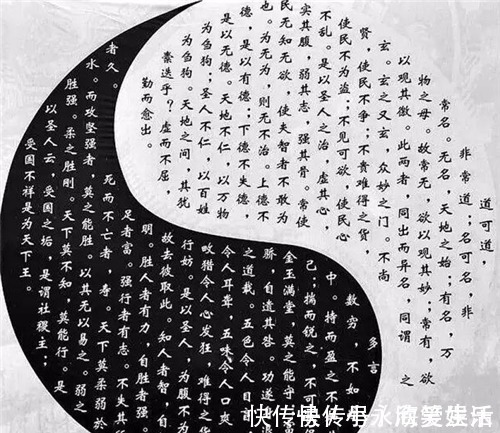 道可道，
非常道；名可名，非
常名。无名，天地之始；有名，万
物之母。故常无，欲以观其妙；常有，欲
以观其徼。此两者，同出而异名，同谓 之
玄。玄之又玄，众妙之门。不尚
贤，使民不争；不贵难得之货，
使民不为盗；不见可欲，使民心
不乱。是以圣人之治，虚其心，
实其腹，弱其志，强其骨。常使
民无知无欲，使夫智者不敢为
也。为无为，则无不治。上德不
德，是以有德；下德不失德，
是以无德。天地不仁，以万物
为刍狗；圣人不仁，以百姓
为刍狗。天地之间，其犹
橐迭乎？虚而不屈
勤而愈出。
多言
数穷，不如
中。持而盈之不
己；揣而锐之，不可
金玉满堂，莫之能守
骄，自遗其咎。功遂
之道哉。五色令人目
令人耳聋，五味令人口爽
畋猎令人心发狂，难得之货
行妨。是以圣人，为腹不为
故去彼取此。知人者智，自
明。胜人者有力，自胜者强。
足者富。强行者有志。不失其
者久。 死而不亡者，寿。天下莫柔弱於
水。而攻坚强者，莫之能胜。以其无以易之。弱之
胜强。柔之胜刚。天下莫不知，莫能行。是
以圣人云，受国之垢，是谓社稷主；
受国不祥是为天下王。
快传号